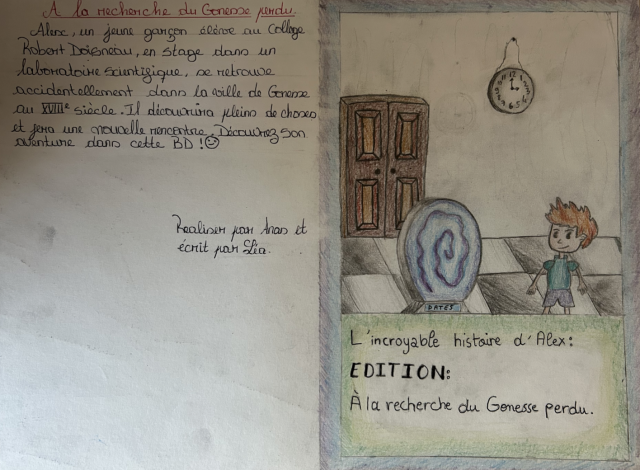 A la recherche du Gonesse perdu.
Alex, un jeune garçon élève au Collège
Robert Doisneau, en stage dans un
laboratoire scientifique, se retrouve
accidentellement dans la ville de Gonesse
au XVIIIe siècle. Il découvrira pleins de choses
et fera une nouvelle rencontre. Découvrez son
aventure dans cette BD !
Realiser par Anas et
écrit par Léa.
DATES
L'incroyable histoire d'Alex:
EDITION:
À la recherche du Gonesse perdu.